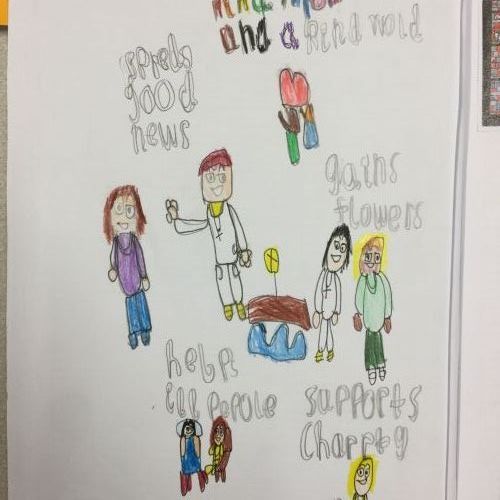 and a kind wold
sprels
good
news
gains
flowers
helps
ill people
supports
Charrty